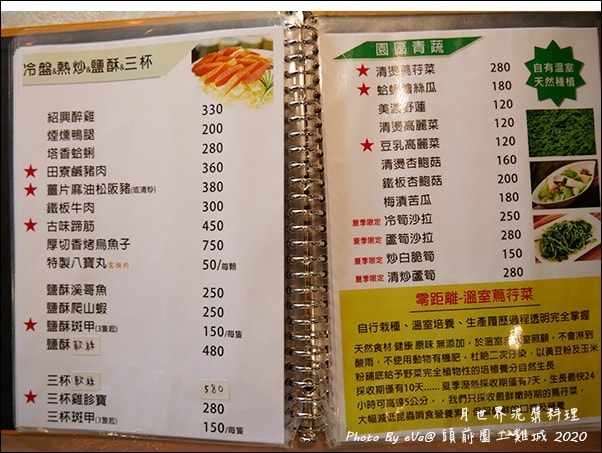 冷盤&熱炒&鹽酥&三杯
紹興醉雞 330
煙燻鴨腿 200
塔香蛤蜊 280
★ 田寮鹹豬肉 360
★ 薑片麻油松阪豬(或清炒) 380
鐵板牛肉 300
★ 古味蹄筋 450
厚切香烤烏魚子 750
特製八寶丸 50/每顆
鹽酥溪哥魚 250
鹽酥爬山蝦 250
★ 鹽酥斑甲(3隻起) 150/每隻
鹽酥 軟絲 480
三杯 軟絲 580
★ 三杯雞胗寶 280
三杯斑甲(3隻起) 150/每隻
園區青蔬
自有溫室
天然種植
★ 清燙蔦荇菜 280
★ 蛤蜊燴絲瓜 180
美濃野蓮 120
清燙高麗菜 120
★ 豆乳高麗菜 180
清燙杏鮑菇 160
鐵板杏鮑菇 200
梅漬苦瓜 120
夏季限定 冷筍沙拉 250
夏季限定 ★ 蘆筍沙拉 200
夏季限定 ★ 炒白脆筍 150
夏季限定 ★ 清炒蘆筍 250
零距離-溫室蔦荇菜
自行栽種、溫室培養、生產履歷過程透明完全掌握
天然食材 健康 原味 無添加，於溫室
酸雨，不使用動物有機肥，杜絕二次汙染，以黃豆粉及玉米
粉鋪底給予野菜完全植物性的培植養分自然生長
採收期僅有10天...... 夏季厚熱採收期僅有7天，生長最快24
小時可高達5公分，，我們只採收最鮮嫩時期的蔦荇菜，
大幅減低昆蟲啃食營養素
月世界泥漿料理
Photo By eVa@ 頭前園土雞城 2020